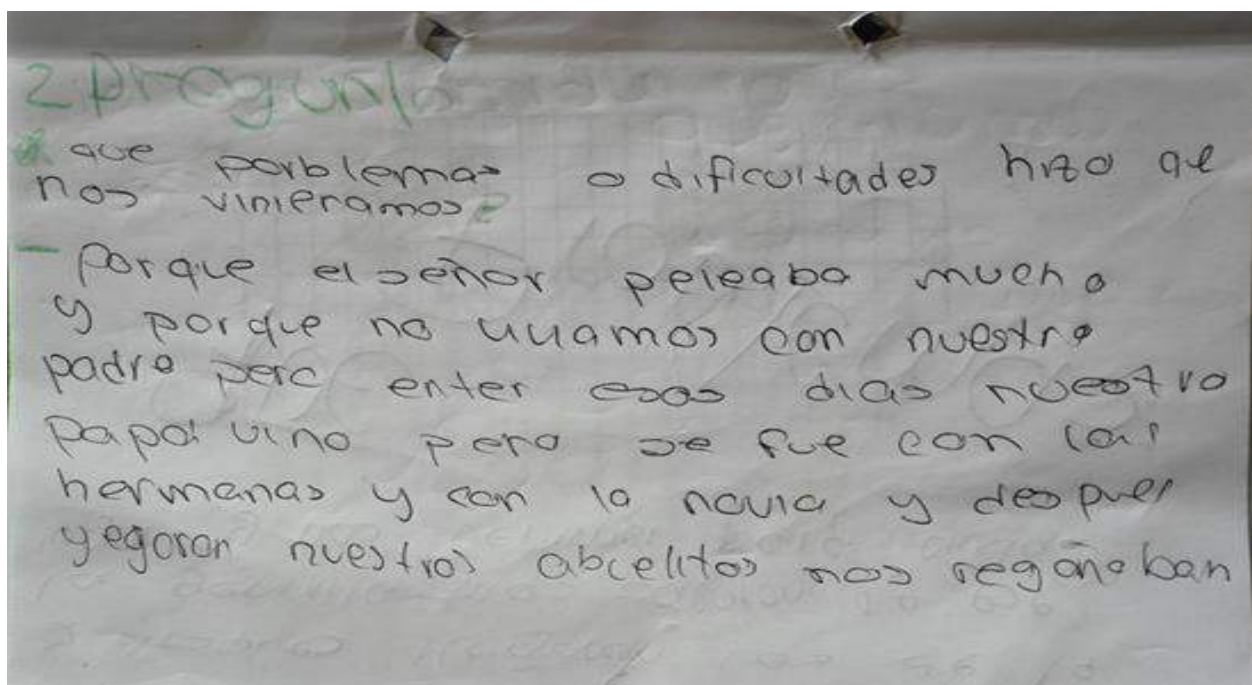 2 pregunta
* que porblemas o dificultades hizo qe
nos vinieramos?
- Porque el señor peleaba mucho
y porque no viviamos con nuestro
padre pero enter esos dias nuestro
papá vino pero se fue con las
hermanas y con la novia y despues
yegoron nuestros abcelitos nos regañaban